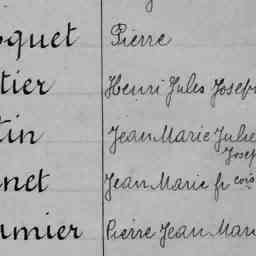 quet Pierre
tier Henri Jules Josep
tin Jean Marie Julie
Josep
net Jean Marie fr çois
umier Pierre Jean Mari